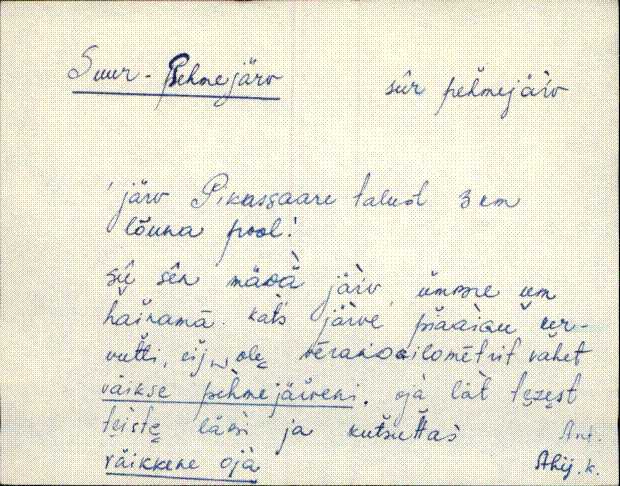 Suur-Pehmejärv
sūr pehmejärv
'järv Pikassaare talust 3 km
lõuna pool!
sjū sēn mäoä järv, ümmre um
hainamā. kat's järve piaaiau ur-
vutti, eij ole vēranokilomētrit vahet
väikse pehmejärveni. oja lät tezest
teiste läbi ja kutsuttas
väikkene oja
Ant.
Ahij. k.